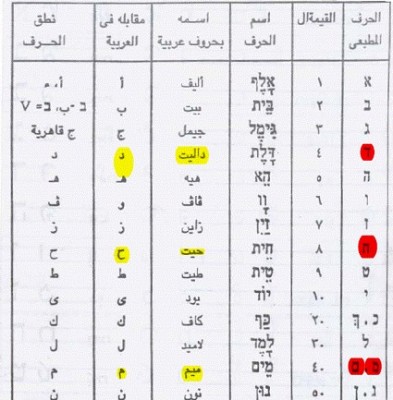 الحرف المطبعى	القيمةال	اسم الحرف	اسمه بحروف عربية	مقابله فى العربية	نطق الحرف
א	١	אָלֶף	أليف	أ	أ، ء
ב	٢	בֵּית	بيت	ب	ב -ب، ב= V
ג	٣	גִּימֶל	جيمل	ج	ج قاهرية
ד	٤	דָּלֶת	داليت	د	د
ה	٥	הֵא	هيه	هـ	هـ
ו	٦	וָו	ڤاڤ	و	ڤ
ז	٧	זַיִן	زاين	ز	ز
ח	٨	חֵית	حيت	ح	ح
ט	٩	טֵית	طيت	ط	ط
י	١٠	יוֹד	يود	ى	ى
כ، ך	٢٠	כַּף	كاف	ك	ك
ל	٣٠	לָמֶד	لاميد	ل	ل
מ ם	٤٠	מֵים	ميم	م	م
נ، ן	٥٠	נוּן	نون	ن	ن